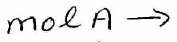 mol A →